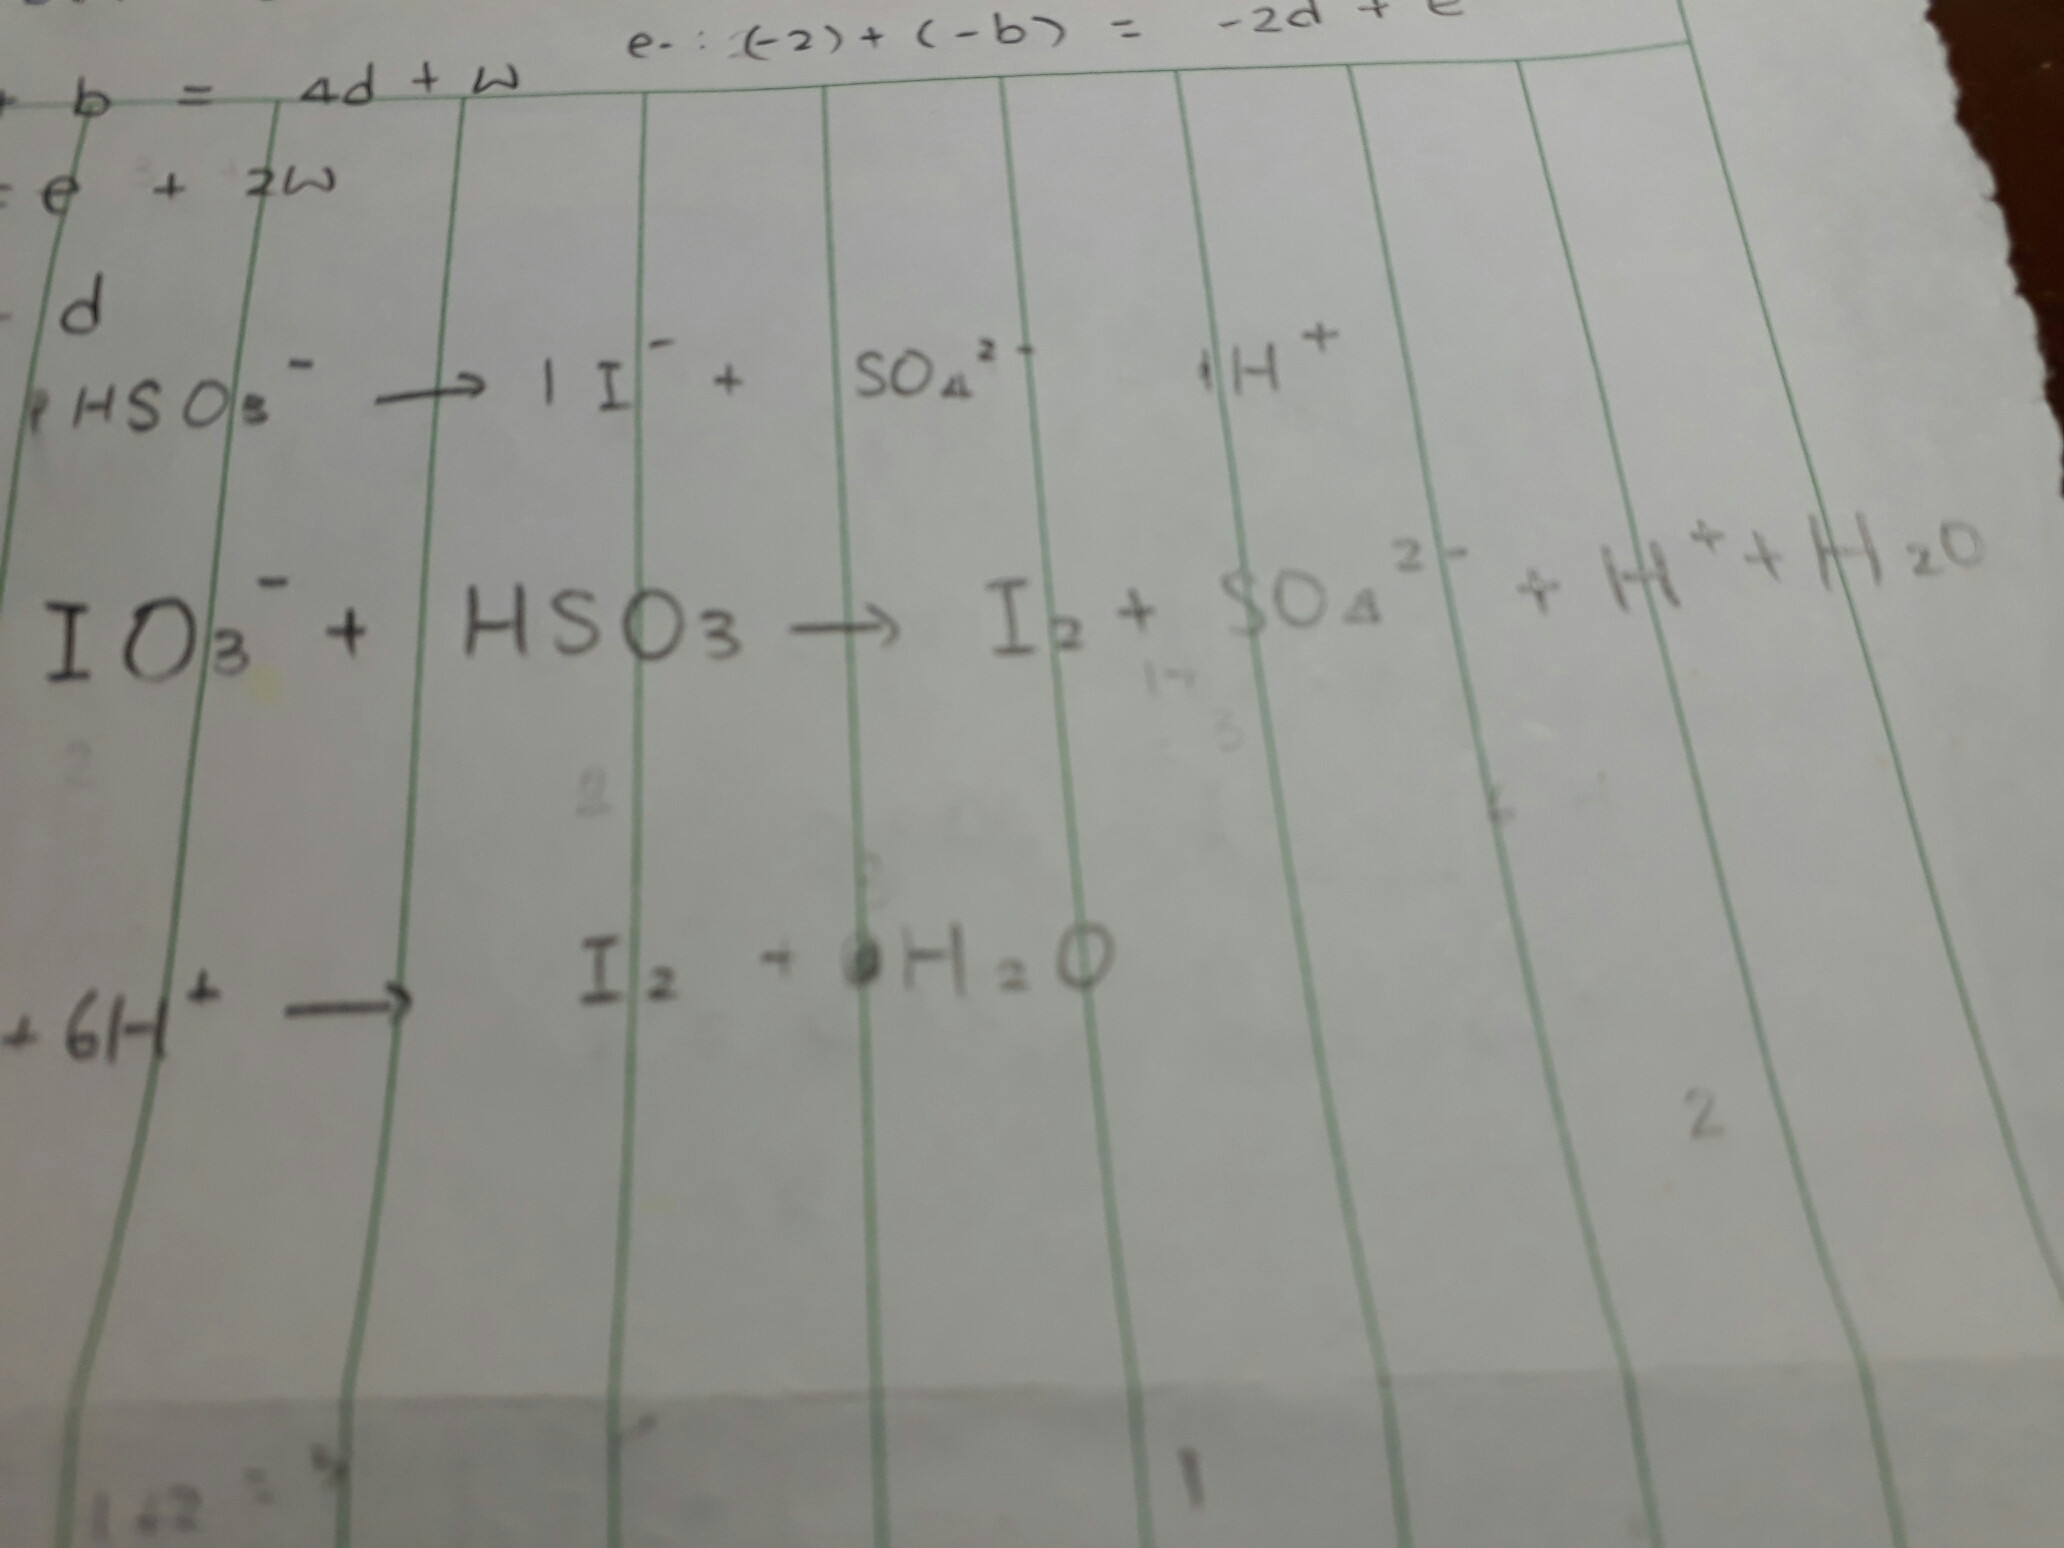 e- : (-2) + (-b) = -2d + e
+ b = 4d + w
= e + 2w
d
HSO3- → 1 I- + SO4 2- +H+
IO3- + HSO3 → I2 + SO4 2- + H+ + H2O
2
3
+ 6H+ → I2 + H2O
2
1+2 =
1